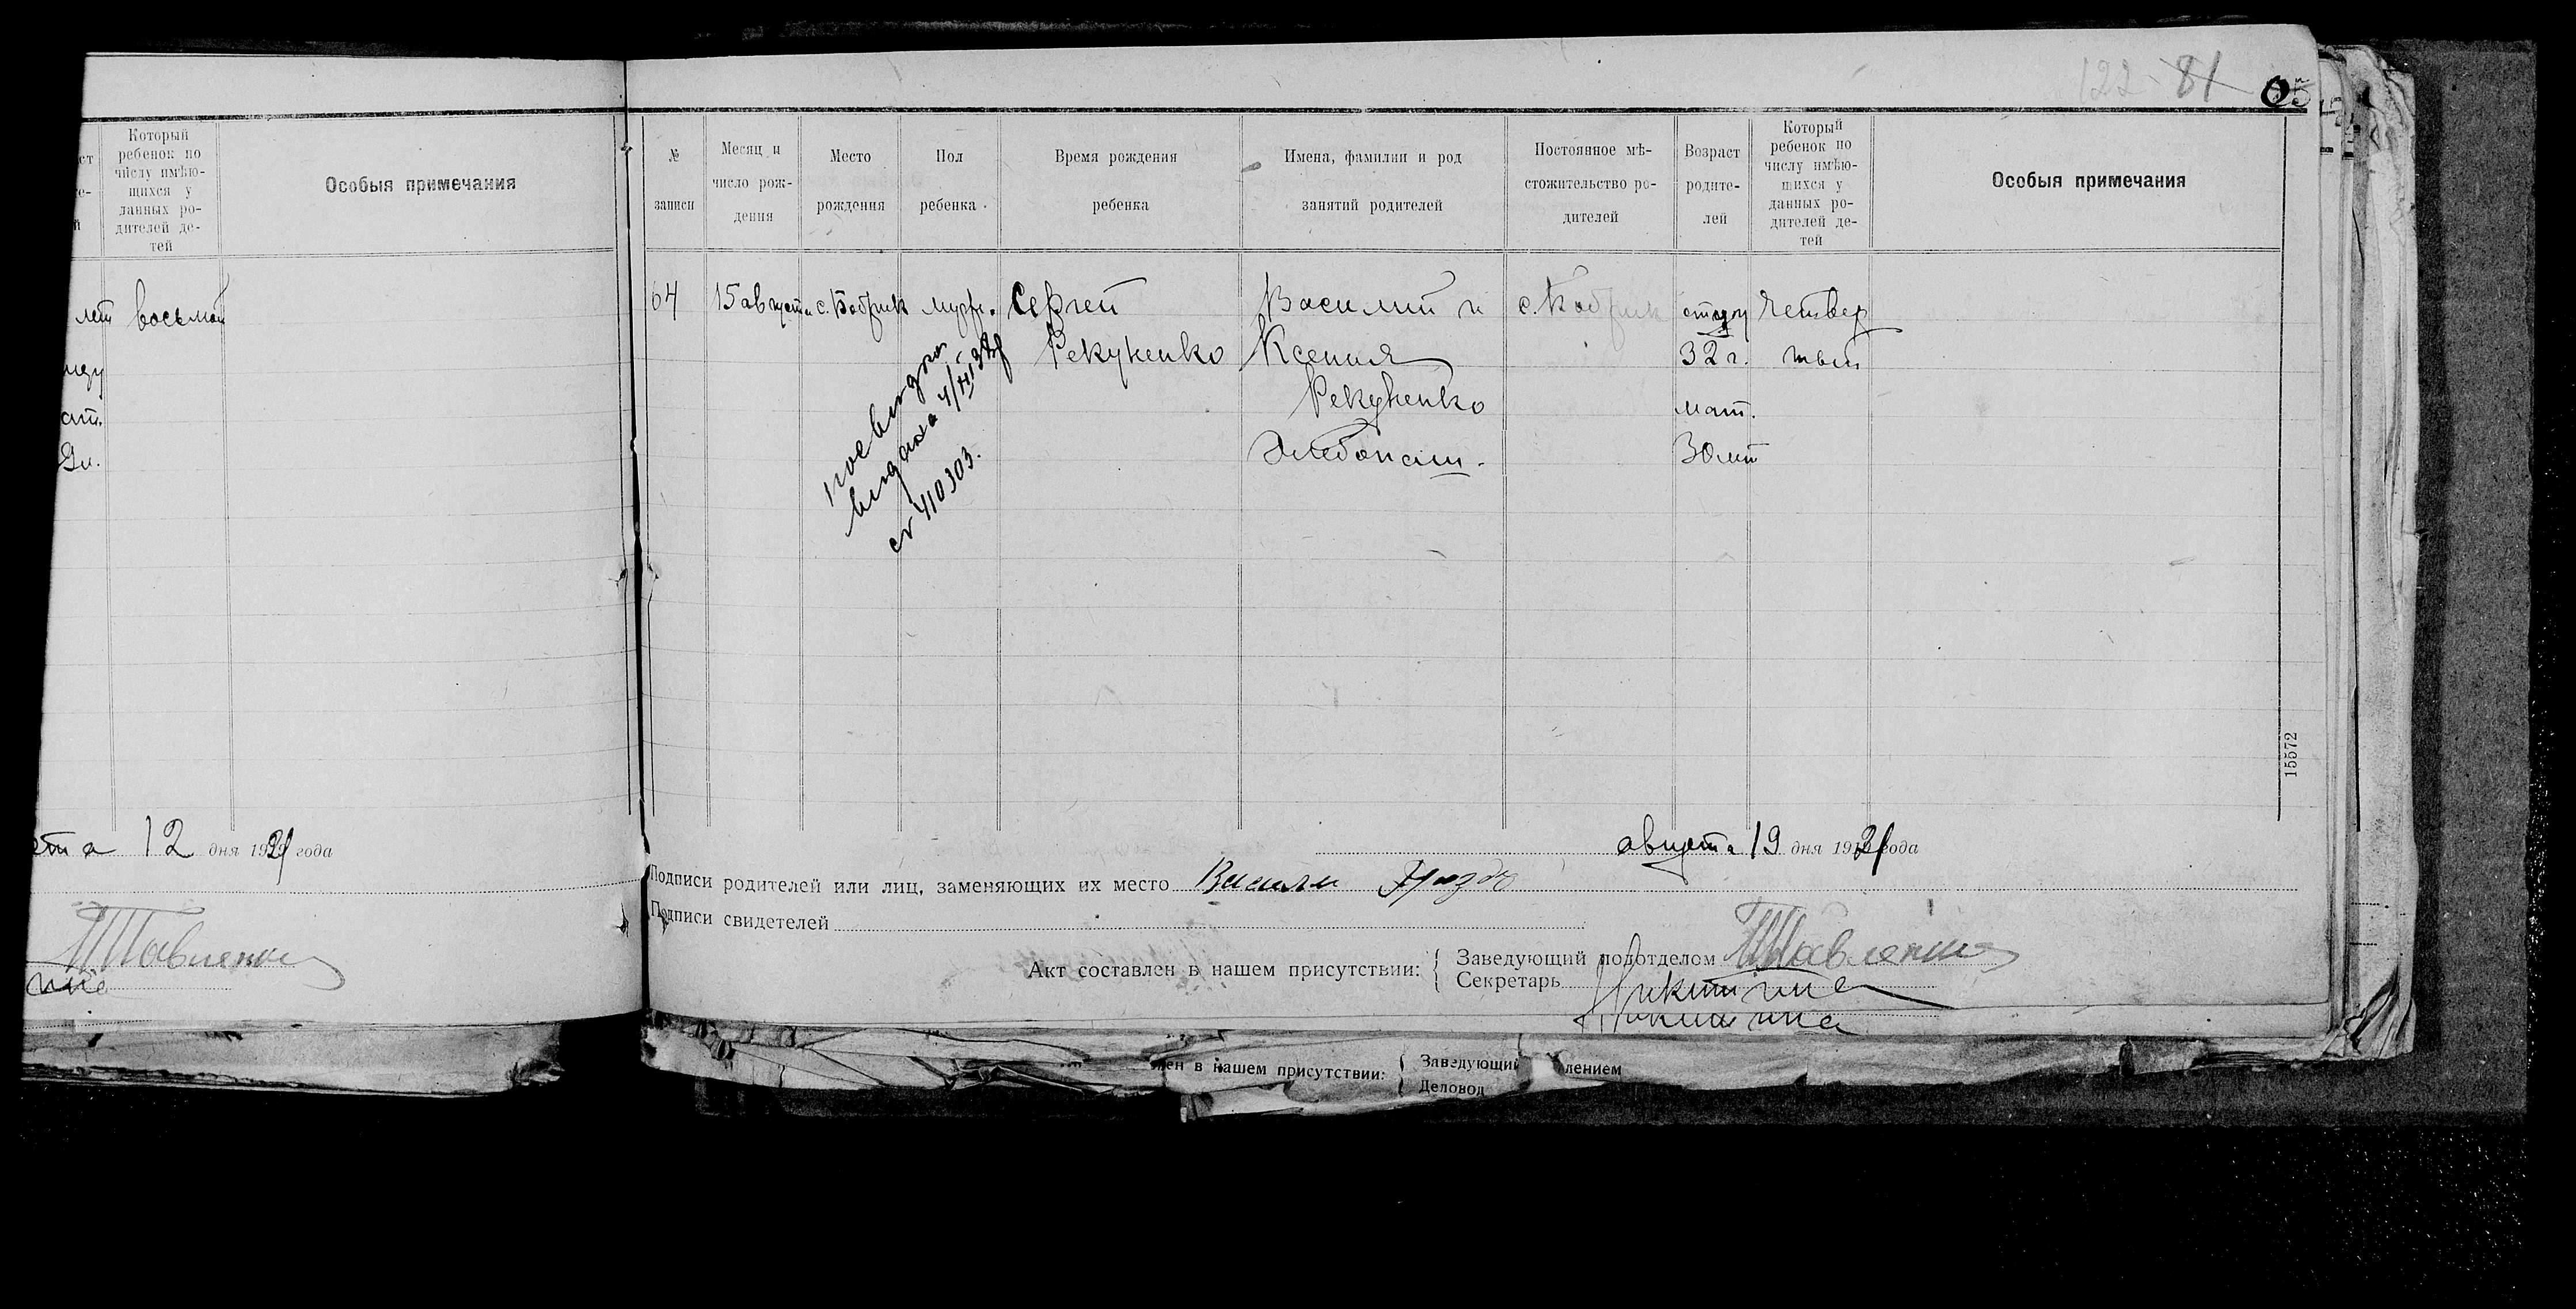 122 81
Который
ребенок по
числу имѣю-
щихся у
данных ро-
дителей де-
тей
Особыя примечания
лет восьмой
12 дня 1921 года
№
записи
Месяц и
число рож-
дения
Место
рождения
Пол
ребенка
Время рождения
ребенка
Имена, фамилии и род
занятий родителей
Постоянное мѣ-
стожительство ро-
дителей
Возраст
родите-
лей
Который
ребенок по
числу имѣю-
щихся у
данных ро-
дителей де-
тей
Особыя примечания
64 15 августа с. Бобрик мужс. Сергей Василий и с. Бобрик отцу четвер
Рекуненко Ксения 32 г. тый
Рекуненко мат.
Хлебопаш. 30 лет
410303.
15572
августа 19 дня 1921 года
Подписи родителей или лиц, заменяющих их место
Подписи свидетелей
Акт составлен в нашем присутствии:
Заведующий подотделом
Секретарь Никитина
Никитина
в нашем присутствии:
Заведующий
лением
Деловод